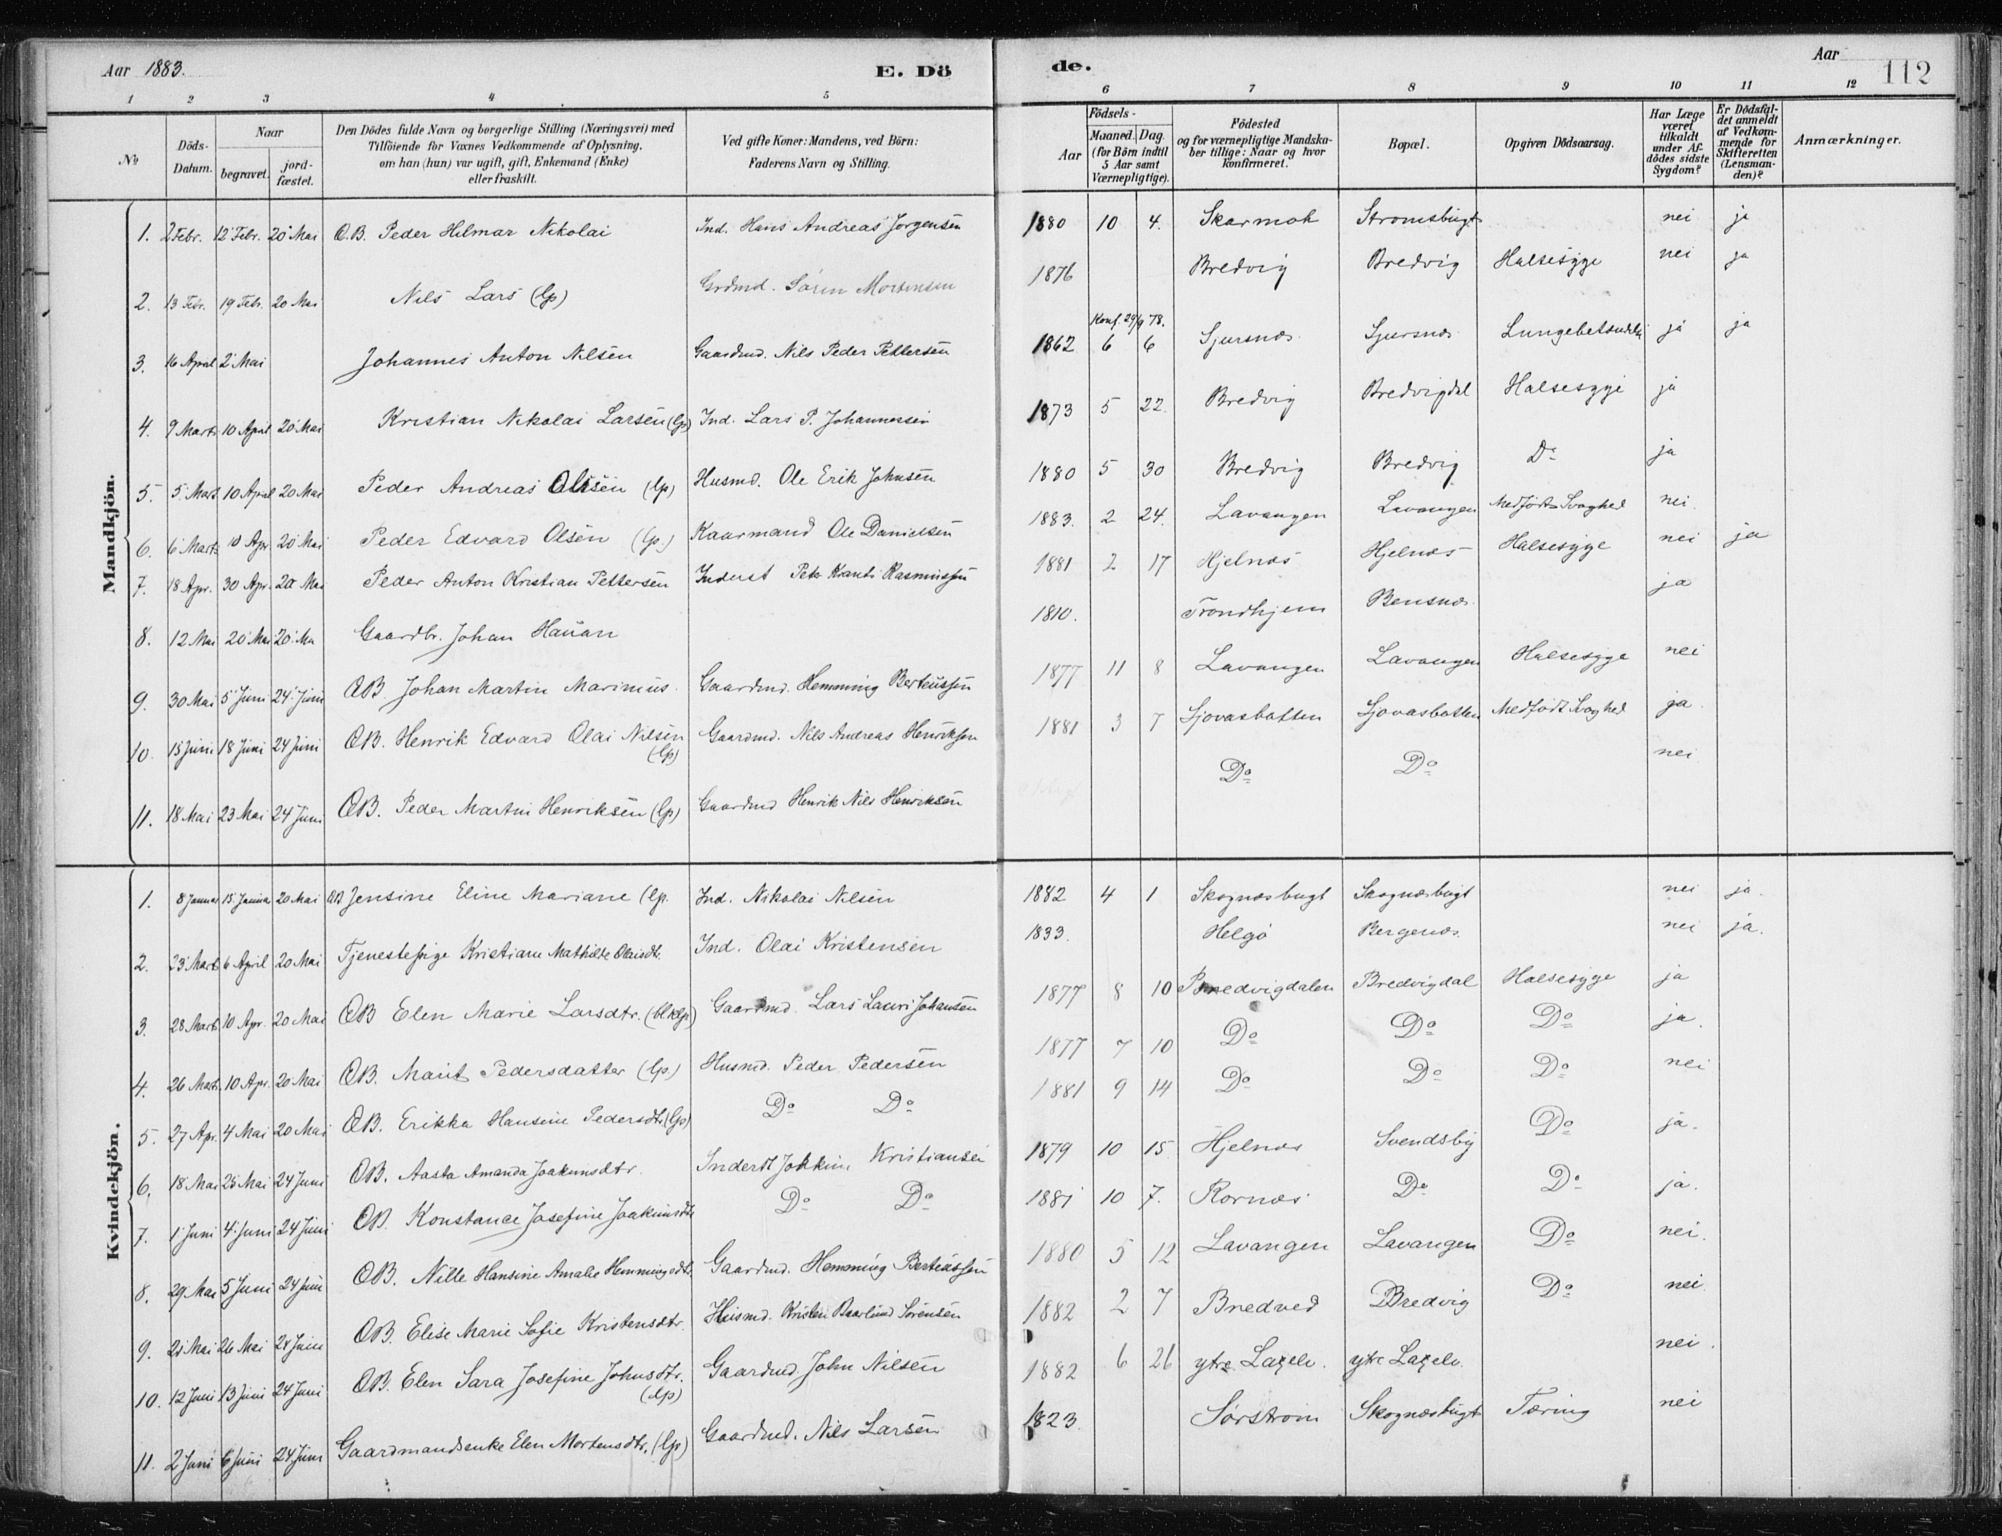 Aar 1883. E. Dö de. Aar 112
1 2 3 4 5 6 7 8 9 10 11 12
No Döds-Datum. Naar begravet. jordfæstet. Den Dödes fulde Navn og borgerlige Stilling (Næringsvei) med Tilföiende for Voxnes Vedkommende af Oplysning, om han (hun) var ugift, gift, Enkemand (Enke) eller fraskilt. Ved gifte Koner: Mandens, ved Börn: Faderens Navn og Stilling. Födsels- Aar Maaned. Dag. (for Børn indtil 5 Aar samt Værnepligtige). Födested og for værnepligtige Mandskaber tillige: Naar og hvor konfirmeret. Bopæl. Opgiven Dödsaarsag. Har Læge været tilkaldt under Afdödes sidste Sygdom? Er Dödsfaldet anmeldt af Vedkommende for Skifteretten (Lensmanden)? Anmærkninger.
Mandkjön.
1. 2 Febr. 12 Febr. 20 Mai O.B. Peder Hilmar Nikolai Ind. Hans Andreas Jørgensen 1880 10 4. Skarmok Stromsbugt nei ja
2. 13 Febr. 19 Febr. 20 Mai Nils Lars (lp) Grdmd. Søren Mortensen 1876 Bredvig Bredvig Halsesyge nei ja
3. 16 April 2 Mai Johannes Anton Nilsen Gaardmd. Nils Peder Pettersen 1862 Konf. 29/9 78. 6 6 Sjursnæs Sjursnæs ja ja
4. 9 Marts 10 April 20 Mai Kristian Nikolai Larsen (lp) Ind. Lars P. Johannessen 1873 5 22. Bredvig Bredvigdal Halsesyge ja
5. 5. Mart. 10 April 20 Mai Peder Andreas Olsen (lp) Husmd. Ole Erik Johnsen 1880 5 30 Bredvig Bredvig Do ja
6. 6 Marts 10 Apr. 20 Mai Peder Edvard Olsen (lp) Kaarmand Ole Danielsen 1883. 2 24. Lavangen Lavangen Medfødt Svaghed nei.
7. 18 Apr. 30 Apr. 20 Mai Peder Anton Kristian Pettersen Inderst Peter Rasmussen 1881 2 17 Hjelnæs Hjelnæs Halsesyge nei ja
8. 12 Mai 20 Mai 20 Ma Gaardbr. Johan Hauan 1810. Trondhjem Bensnæs. ja
9. 30 Mai 5 Juni 24 Juni O.B. Johan Martin Marinius. Gaardmd. Hemming Berteussen 1877 11 8 Lavangen Lavangen Halsesyge nei
10. 15 Juni 18 Juni 24 Juni O.B. Henrik Edvard Olai Nilsen (lp) Gaardmd. Nils Andreas Henriksen 1881 3 7 Sjovasbotten Sjovasbotten Medfødt Svaghed ja.
11. 18 Mai 23 Mai 24 Juni O.B. Peder Martin Henriksen (lp) Gaardmd Henrik Nils Henriksen Do Do nei
Kvindekjön.
1. 8 Januar 15 Januar 20 Mai OB Jensine Eline Mariane (lp. Ind. Nikolai Nilsen 1882 4 1 Skognæsbugt Skognæsbugt nei ja.
2. 23 Mart. 6 April 20 Mai Tjenestepige Kristiane Mathilde Olaisdtr. Ind. Olai Kristensen 1833. Helgö Bergenæs. nei ja.
3. 28 Mart. 10 Apr. 20 Mai OB Elen Marie Larsdtr. Gaardmd. Lars Lauri Johansen 1877 8 10 Bredvigdalen Bredvigdal Halsesyge ja
4. 26 Mart. 10 Apr. 20 Mai OB. Marit Pedersdatter (lp.) Husmd. Peder Pedersen 1877 7 10 Do Do Do ja.
5. 27 Apr. 4 Mai 20 Mai OB. Erikka Hansine Pedersdtr (lp) Do Do 1881 9 14 Do Do Do nei
6. 18 Mai 25 Mai 24 Juni OB. Aasta Amanda Joakimsdtr. Inderst Kristiansen 1879 10 15. Hjelnæs Svendsby Do ja.
7. 1 Juni 4 Juni 24 Juni OB. Konstance Josefine Joakimsdtr Do Do 1881 10 7. Rornæs Do Do ja.
8. 29 Mai 5 Juni 24 Juni OB. Nille Hansine Amalie Hemmingsdtr Gaardmd. Hemming Berteussen 1880 5 12 Lavangen Lavangen Do nei.
9. 21 Mai 26 Mai 24 Juni OB. Elise Marie Sofie Kristensdtr. Husmd. Kristen Baarlund Sørensen 1882 2 7 Bredved Bredvig Do nei
10. 12 Juni 13 Juni 24 Juni OB. Elen Sara Josefine Johnsdtr. (lp) Gaardmd John Nilsen 1882 6 26 ytre Laxelv. ytre Laxelv. nei.
11. 2 Juni 6 Juni 24 Juni Gaardmandsenke Elen Mortensdtr. (lp) Gaardmd. Nils Larsen 1823. Sørstrom Skognæsbugt Tæring nei